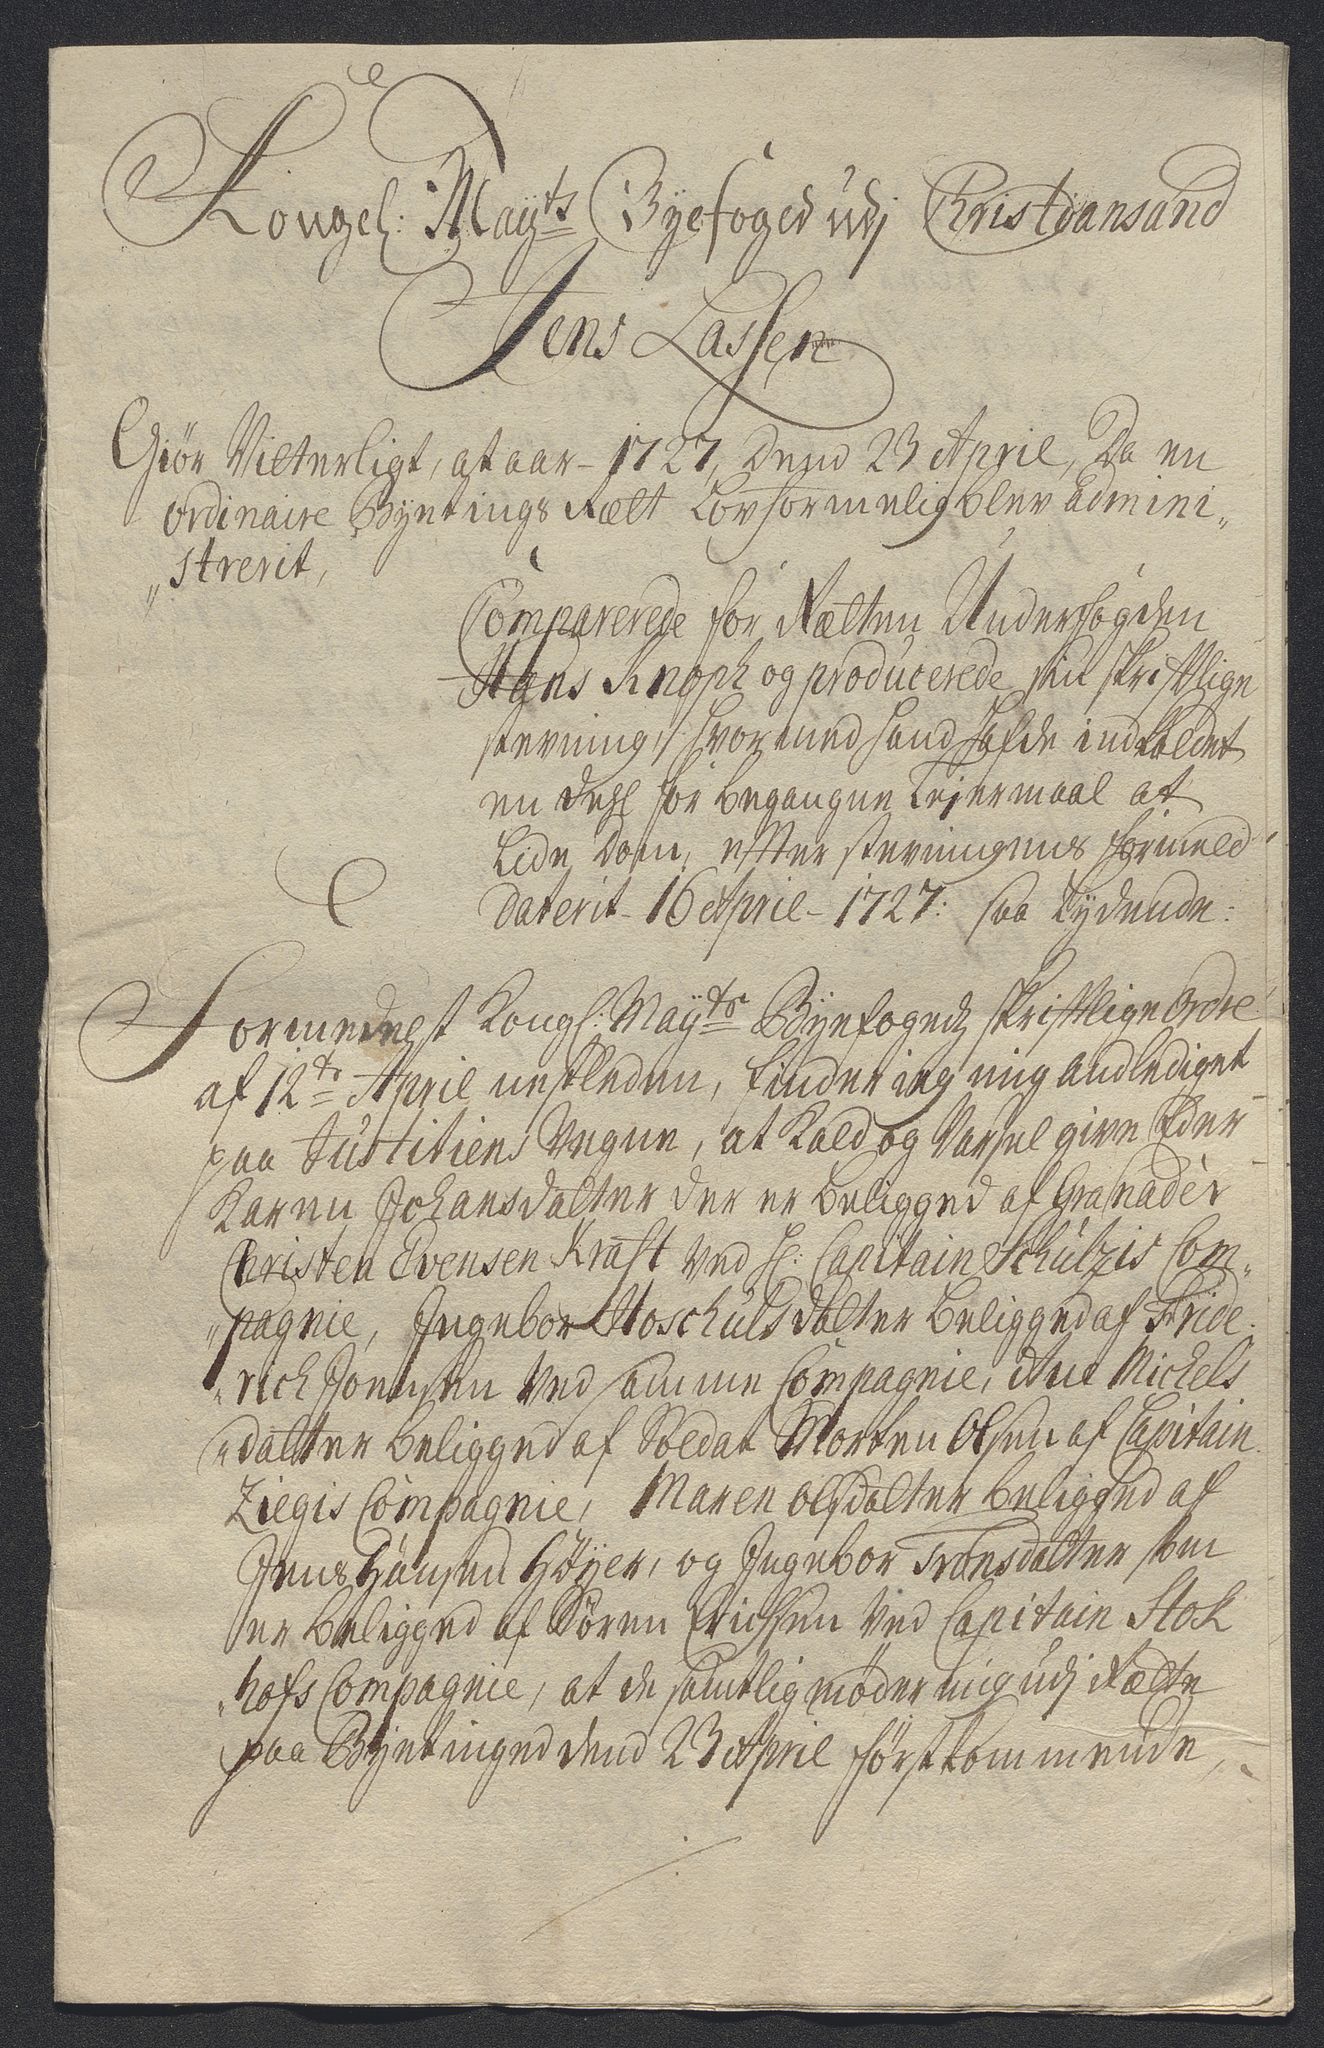 Kongel: Mayts Byefoged udj Christiansand
Jens Lassen
Giør Vitterligt, at aar - 1727, dend 23 April, Da en
ordinaire Byetings Rætt Lovformelig blev admini„
„strerit,
Comparerede for Rætten Underfogden
Hans Knoph og producerede sin skrifftlige
stevning, hvormed hand hafde indkaldet
en dehl for begangne Leiermaal at
Lide Dom, efter stevningens formeld
daterit - 16 April - 1727: saa Lydende:
Formedelst Kongl: Mayts Byefogeds skrifftlige Ordre
af 12te April nestleden, finder ieg mig andlediget
paa Justitiens Vegne, at Kald og Varsel give Eder
Karen Johansdatter der er beligged af Granadér
Christen Evensen Krafft ved H: Capitain Schultzis Com„
„pagnie, Ingebor Hoschulds datter beligged af Fride
„rich Joensen ved samme Compagnie, Ane Michels
„datter beligged af Soldat Morten Olsen af Capitain
Ziegis Compagnie, Maren Olsdatter beligged af
Jens Hansen Høyer, og Ingebor Tronsdatter som
er beligged af Søren Erichsen ved Capitain Stok
„hofs Compagnie, at de samtlig møder mig udj Rætte
paa Byetinged dend 23 April førstkommende,